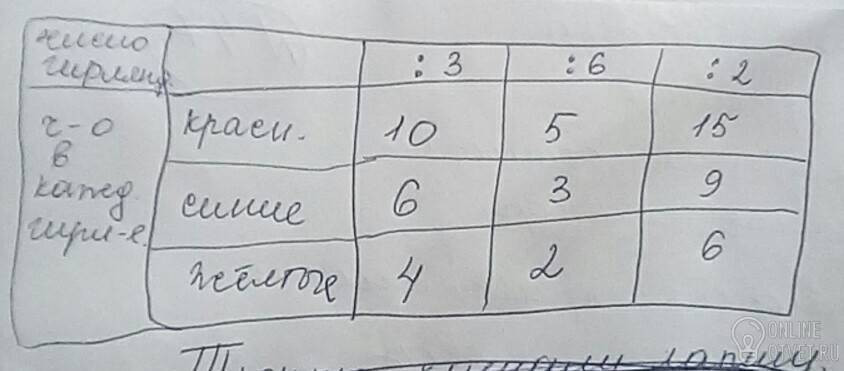 число
гирлянд : 3 : 6 : 2
ч-о
в
кажд.
гирл-е.
красн. 10 5 15
синие 6 3 9
жёлтые 4 2 6
ONLINE
OTVET.RU